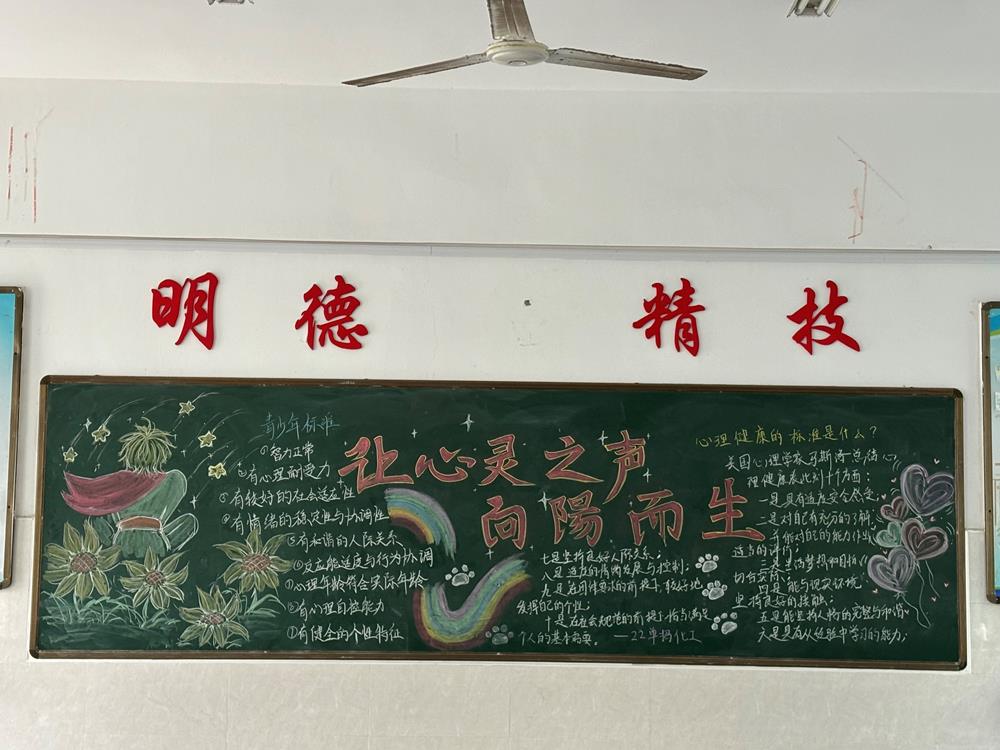 明德 精技
青少年标准
①智力正常
②有心理耐受力
③有较好的社会适应性
④有情绪的稳定性与协调性
⑤有和谐的人际关系
⑥反应能适度与行为协调
⑦心理年龄符合实际年龄
有心理自控能力
有健全的个性特征
让心灵之声
向陽而生
七是坚持良好人际关系;
八是适度的情绪发展与控制;
九是在团体要求的前提下,较好地
发挥自己的个性;
十是在社会规范的前提下恰当满足
个人的基本需要。 —22单招化工
心理健康的标准是什么?
美国心理学家马斯洛总结心
理健康表现十个方面:
一是具有适度安全感;
二是对自己有充分的了解,
并能对自己的能力作出
适当的评价;
三是生活梦想和目标
切合实际;
四是能与现实环境
坚持良好的接触;
五是能坚持人格的完整与和谐;
六是具有从经验中学习的能力;